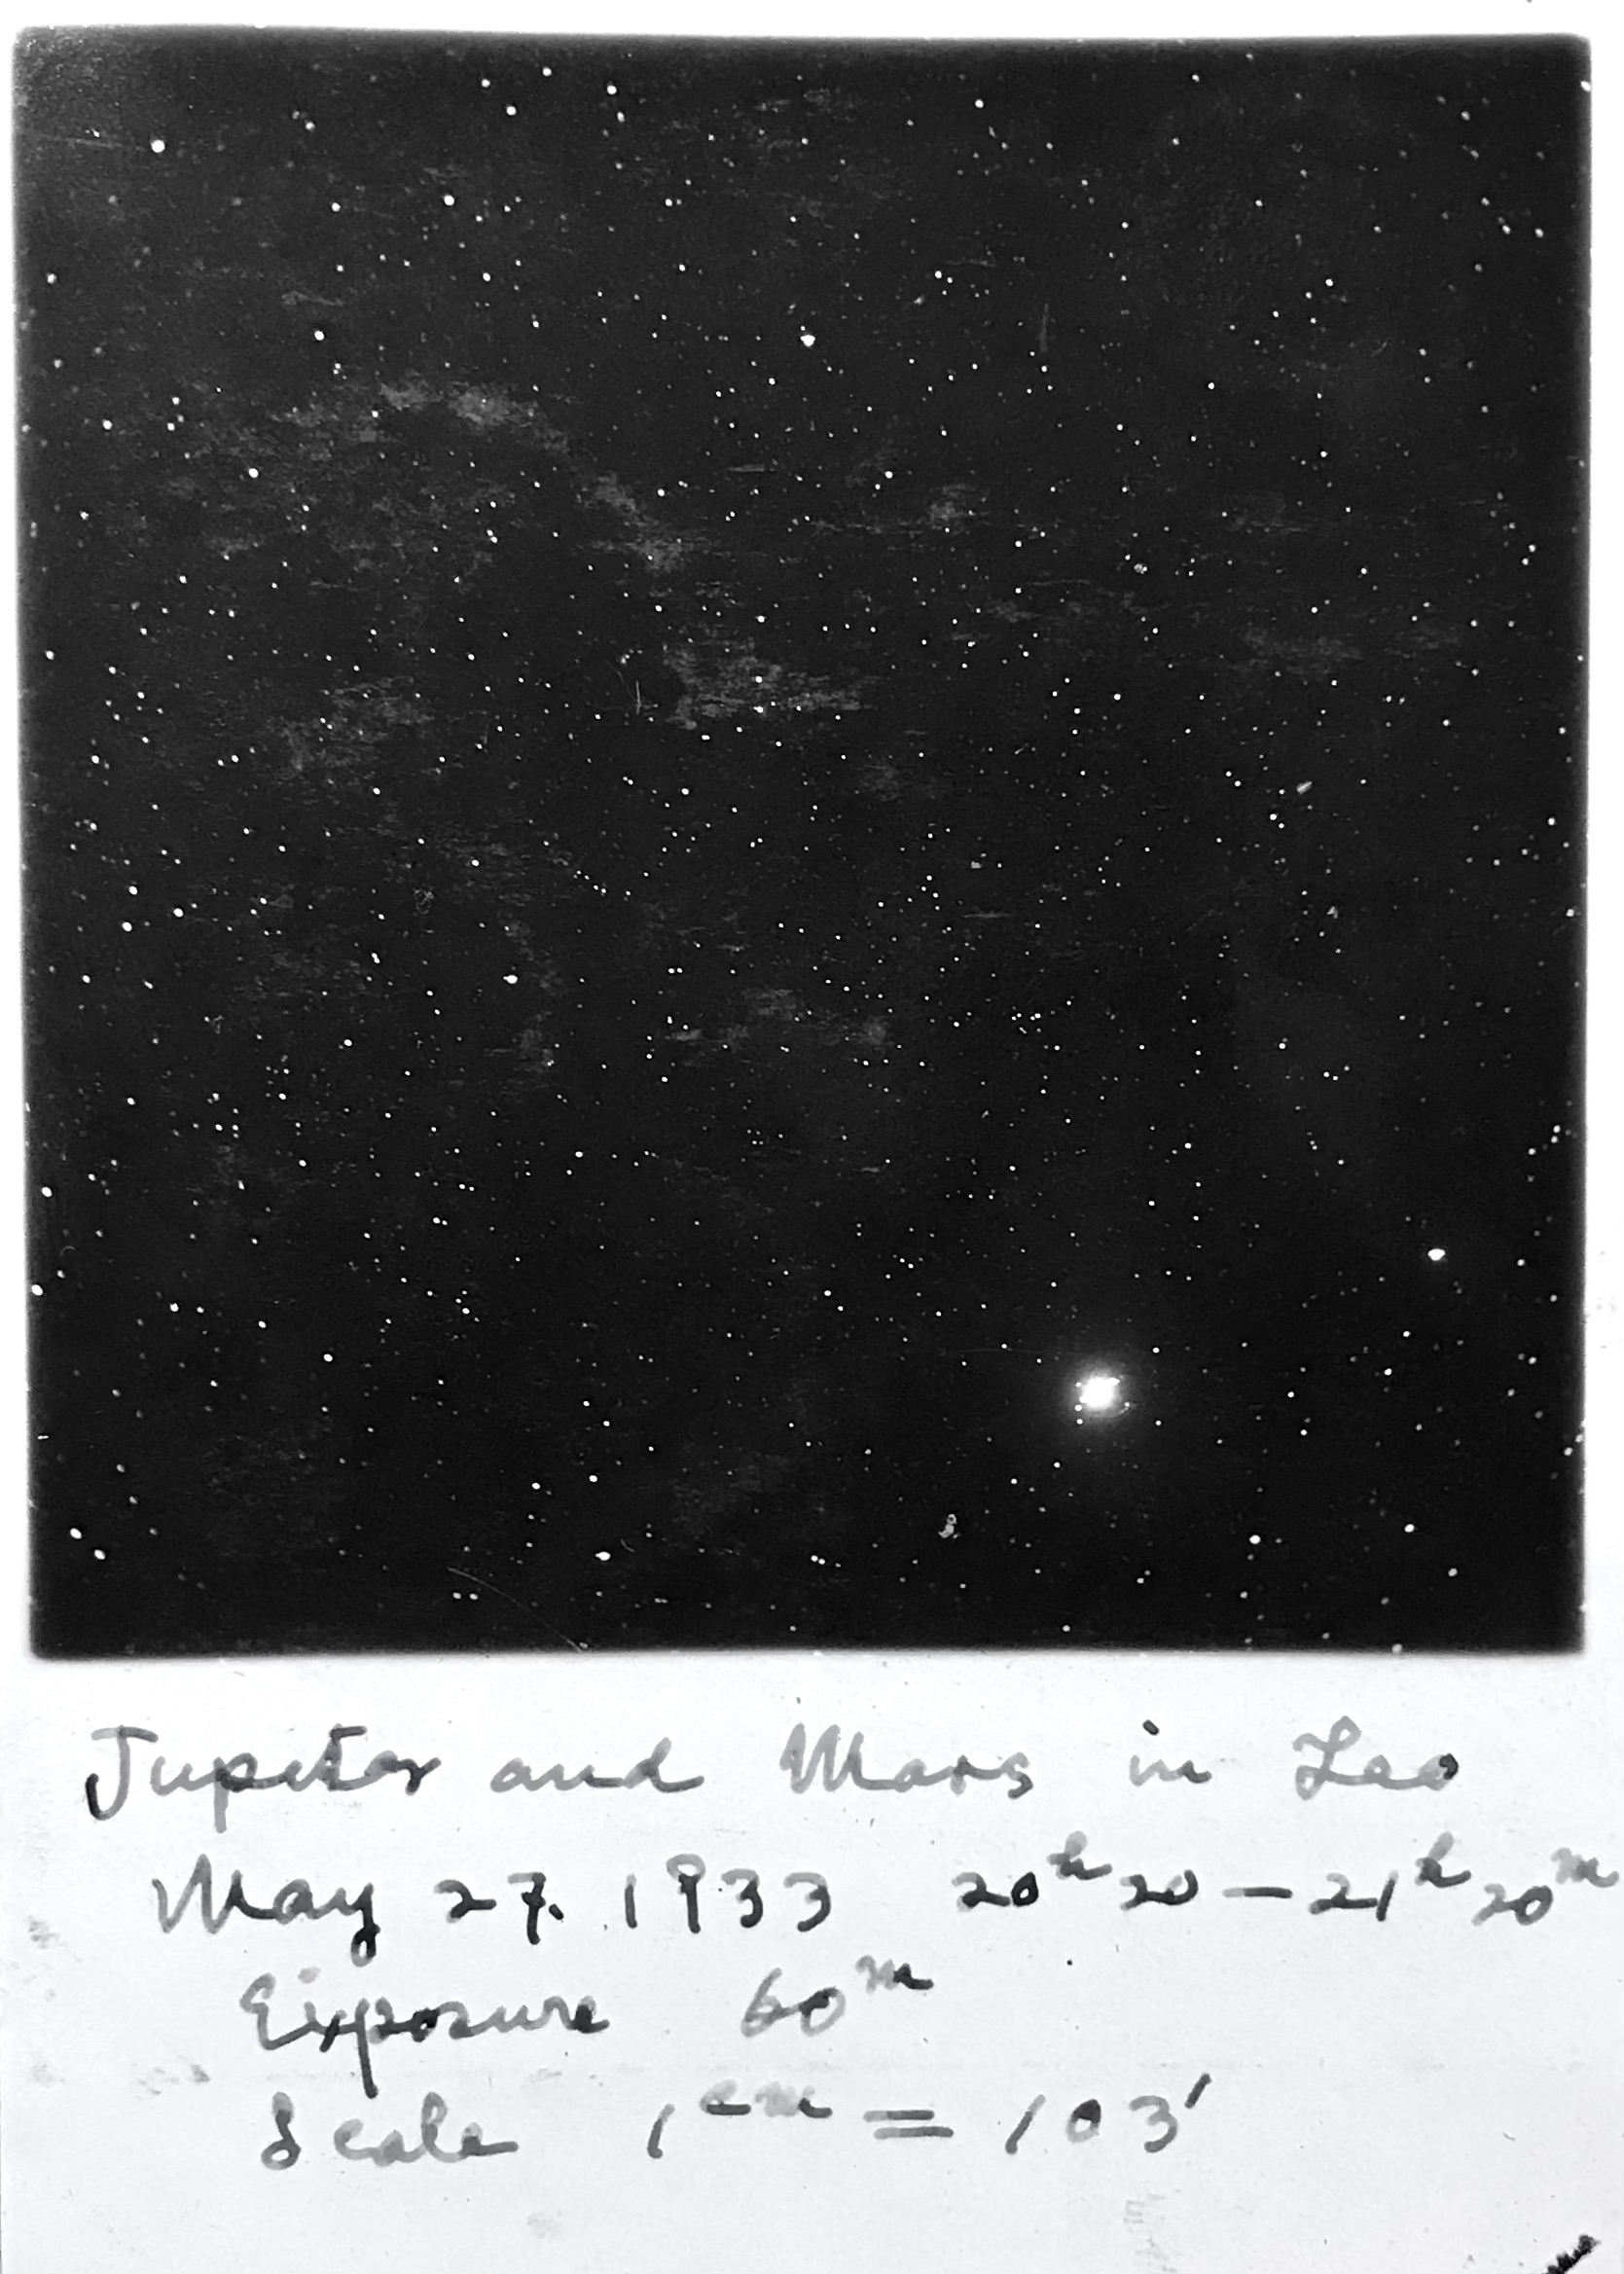 Jupiter and Mars in Leo
May 27. 1933 20ʰ20 — 21ʰ20ᵐ
Exposure 60ᵐ
Scale 1ᶜᵐ = 103′